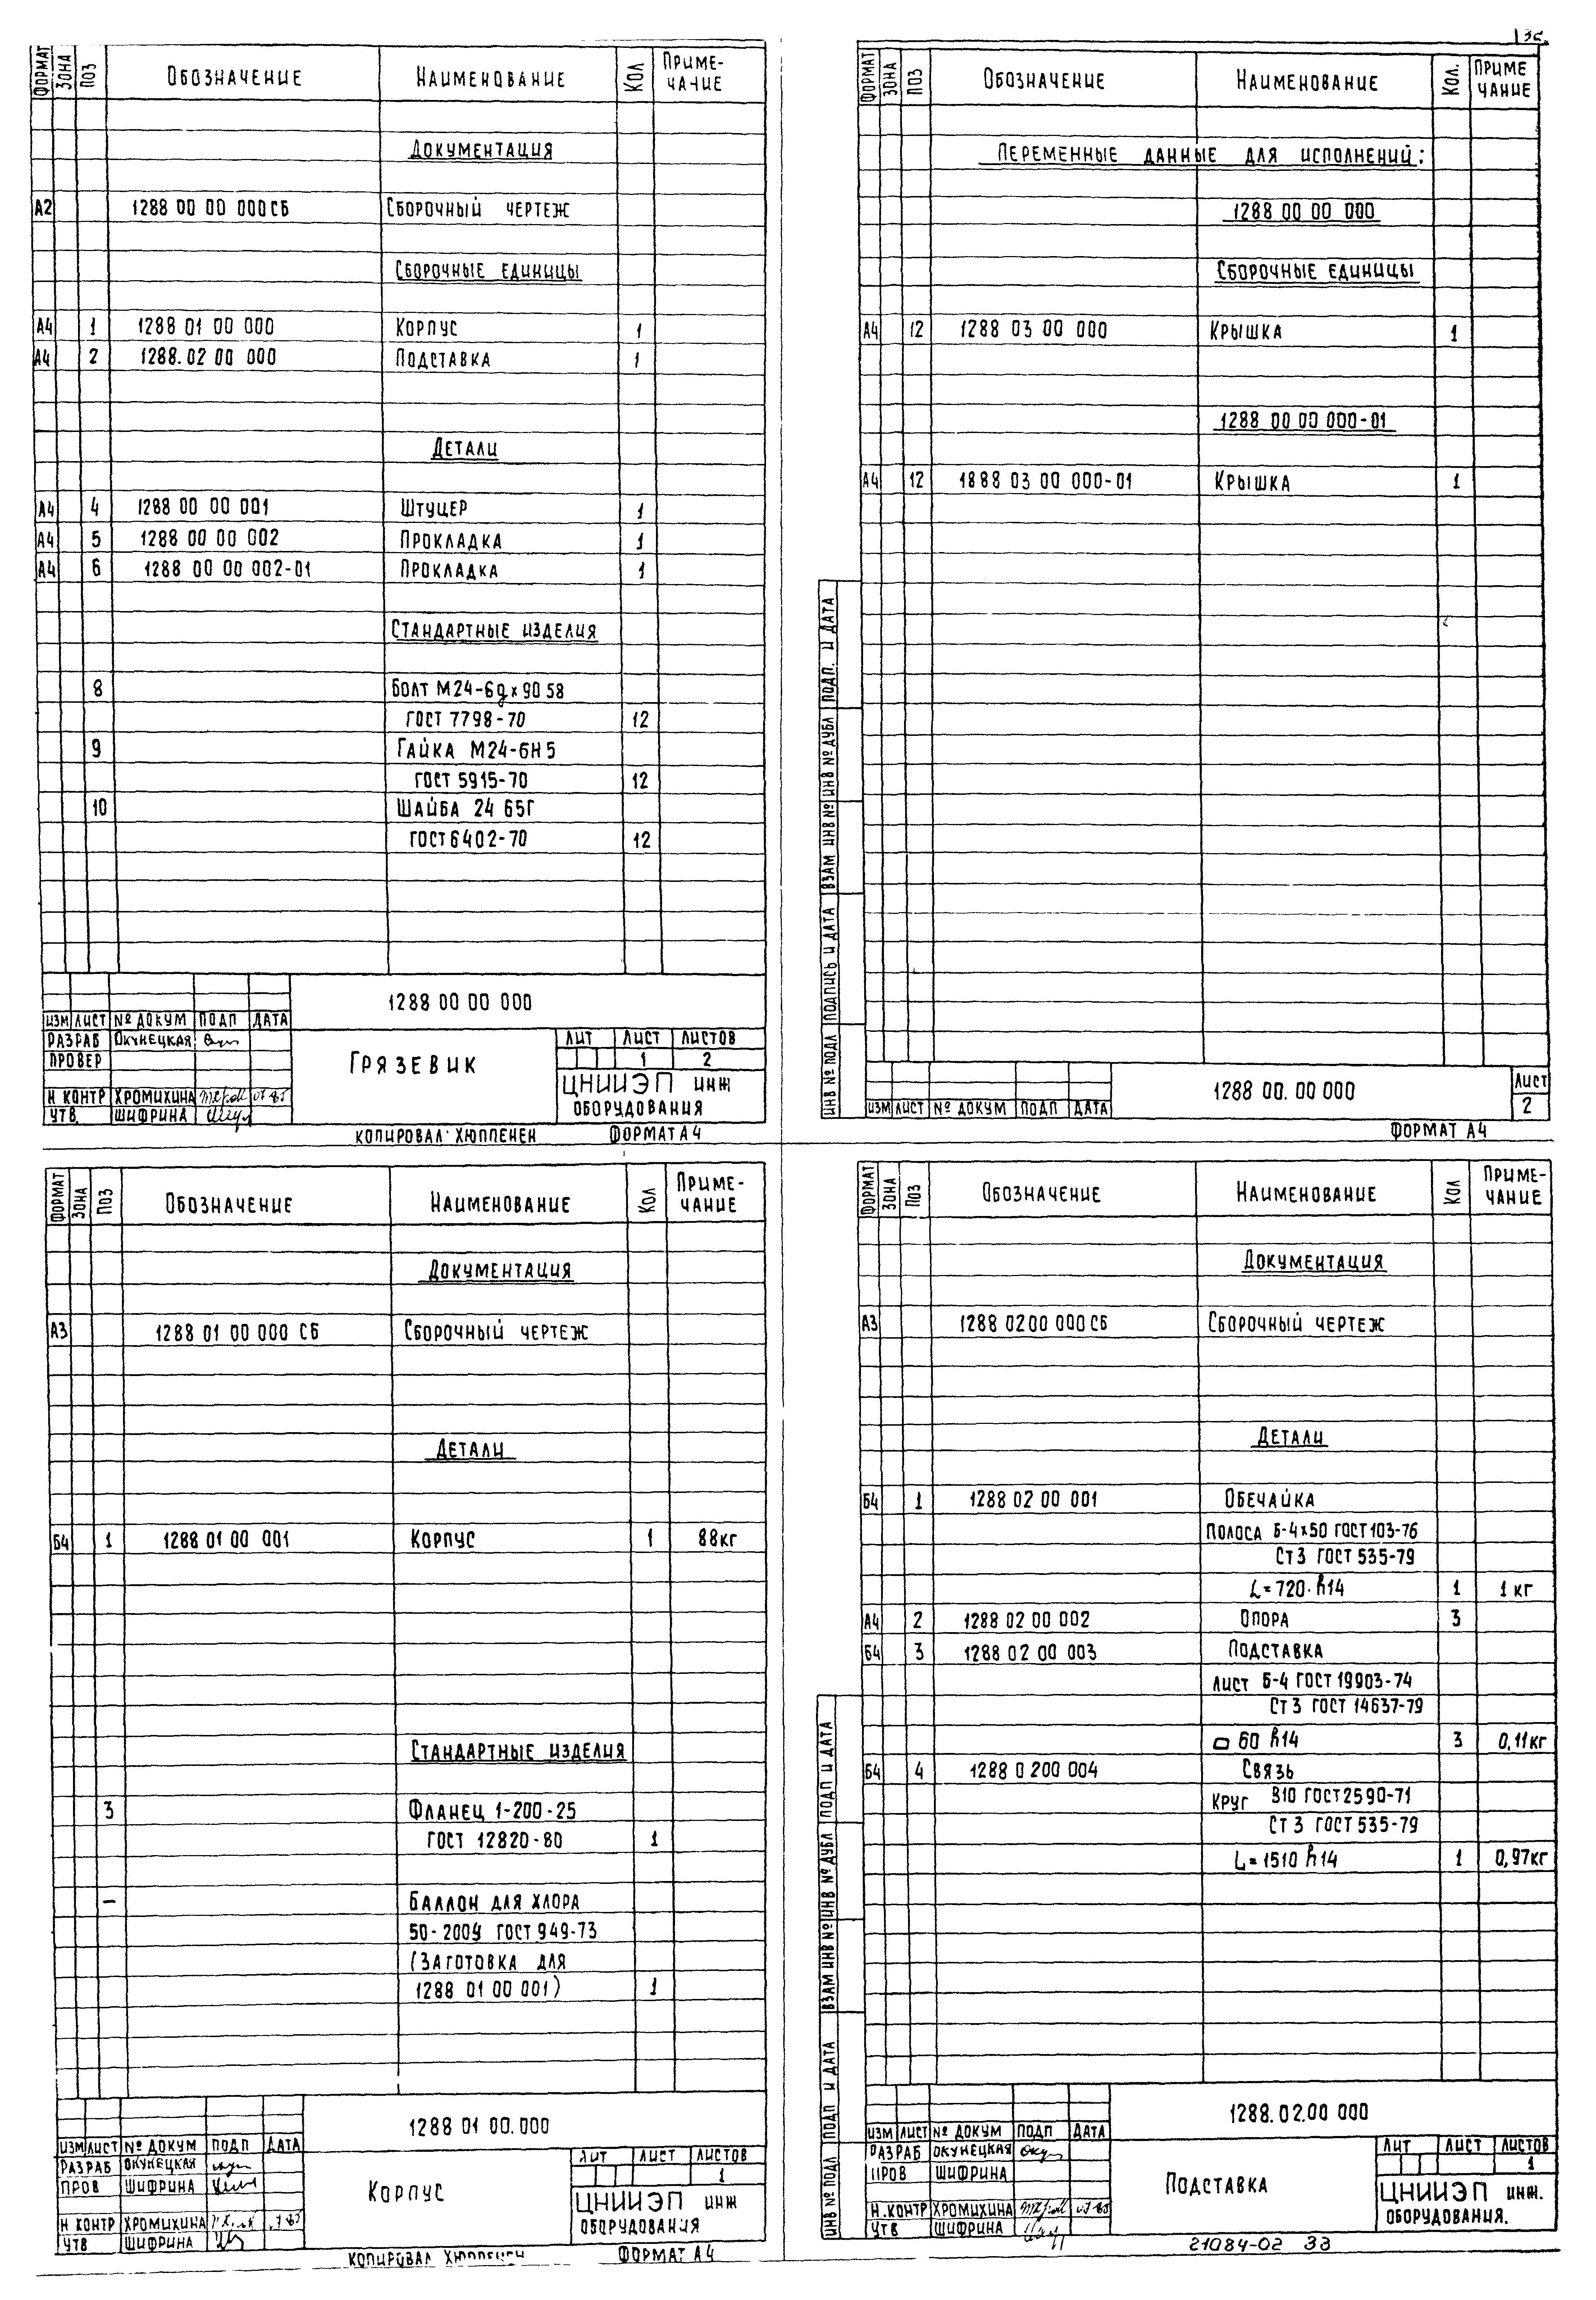 ФОРМАТ ЗОНА ПОЗ ОБОЗНАЧЕНИЕ НАИМЕНОВАНИЕ КОЛ ПРИМЕ-
ЧАНИЕ
ДОКУМЕНТАЦИЯ
А2 1288 00 00 000СБ СБОРОЧНЫЙ ЧЕРТЕЖ
СБОРОЧНЫЕ ЕДИНИЦЫ
А4 1 1288 01 00 000 КОРПУС 1
А4 2 1288.02 00 000 ПОДСТАВКА 1
ДЕТАЛИ
А4 4 1288 00 00 001 ШТУЦЕР 1
А4 5 1288 00 00 002 ПРОКЛАДКА 1
А4 6 1288 00 00 002-01 ПРОКЛАДКА 1
СТАНДАРТНЫЕ ИЗДЕЛИЯ
8 БОЛТ М24-6g×90 58
ГОСТ 7798-70 12
9 ГАЙКА М24-6Н5
ГОСТ 5915-70 12
10 ШАЙБА 24 65Г
ГОСТ 6402-70 12
1288 00 00 000
ИЗМ ЛИСТ № ДОКУМ ПОДП ДАТА
РАЗРАБ ОКУНЕЦКАЯ
ПРОВЕР
Н КОНТР ХРОМИХИНА
УТВ. ШИФРИНА
ГРЯЗЕВИК
ЛИТ ЛИСТ ЛИСТОВ
1 2
ЦНИИЭП ИНЖ
ОБОРУДОВАНИЯ
КОПИРОВАЛ ХЮППЕНЕН ФОРМАТ А4
ФОРМАТ ЗОНА ПОЗ ОБОЗНАЧЕНИЕ НАИМЕНОВАНИЕ КОЛ. ПРИМЕ
ЧАНИЕ
ПЕРЕМЕННЫЕ ДАННЫЕ ДЛЯ ИСПОЛНЕНИЙ:
1288 00 00 000
СБОРОЧНЫЕ ЕДИНИЦЫ
А4 12 1288 03 00 000 КРЫШКА 1
1288 00 00 000-01
А4 12 1888 03 00 000-01 КРЫШКА 1
ИНВ № ПОДЛ ПОДПИСЬ И ДАТА ВЗАМ ИНВ № ИНВ № ДУБЛ ПОДП. И ДАТА
ИЗМ ЛИСТ № ДОКУМ ПОДП ДАТА
1288 00. 00 000
ЛИСТ
2
ФОРМАТ А4
ФОРМАТ ЗОНА ПОЗ ОБОЗНАЧЕНИЕ НАИМЕНОВАНИЕ КОЛ ПРИМЕ-
ЧАНИЕ
ДОКУМЕНТАЦИЯ
А3 1288 01 00 000 СБ СБОРОЧНЫЙ ЧЕРТЕЖ
ДЕТАЛИ
Б4 1 1288 01 00 001 КОРПУС 1 88кг
СТАНДАРТНЫЕ ИЗДЕЛИЯ
3 ФЛАНЕЦ 1-200-25
ГОСТ 12820-80 1
– БАЛЛОН ДЛЯ ХЛОРА
50-200У ГОСТ 949-73
(ЗАГОТОВКА ДЛЯ
1288 01 00 001) 1
1288 01 00.000
ИЗМ ЛИСТ № ДОКУМ ПОДП ДАТА
РАЗРАБ ОКУНЕЦКАЯ
ПРОВ ШИФРИНА
Н КОНТР ХРОМИХИНА
УТВ ШИФРИНА
КОРПУС
ЛИТ ЛИСТ ЛИСТОВ
1
ЦНИИЭП ИНЖ
ОБОРУДОВАНИЯ
КОПИРОВАЛ ХЮППЕНЕН ФОРМАТ А4
ФОРМАТ ЗОНА ПОЗ ОБОЗНАЧЕНИЕ НАИМЕНОВАНИЕ КОЛ ПРИМЕ-
ЧАНИЕ
ДОКУМЕНТАЦИЯ
А3 1288 0200 000СБ СБОРОЧНЫЙ ЧЕРТЕЖ
ДЕТАЛИ
Б4 1 1288 02 00 001 ОБЕЧАЙКА
ПОЛОСА Б-4×50 ГОСТ 103-76
СТ 3 ГОСТ 535-79
L=720·h14 1 1 кг
А4 2 1288 02 00 002 ОПОРА 3
Б4 3 1288 02 00 003 ПОДСТАВКА
ЛИСТ Б-4 ГОСТ 19903-74
СТ 3 ГОСТ 14637-79
□ 60 h14 3 0,11кг
Б4 4 1288 0 200 004 СВЯЗЬ
КРУГ В10 ГОСТ 2590-71
СТ 3 ГОСТ 535-79
L=1510 h14 1 0,97кг
ИНВ № ПОДЛ ПОДП И ДАТА ВЗАМ ИНВ № ИНВ № ДУБЛ ПОДП И ДАТА
1288.02.00 000
ИЗМ ЛИСТ № ДОКУМ ПОДП ДАТА
РАЗРАБ ОКУНЕЦКАЯ
ПРОВ ШИФРИНА
Н.КОНТР ХРОМИХИНА
УТВ ШИФРИНА
ПОДСТАВКА
ЛИТ ЛИСТ ЛИСТОВ
1
ЦНИИЭП ИНЖ.
ОБОРУДОВАНИЯ.
21084-02 33